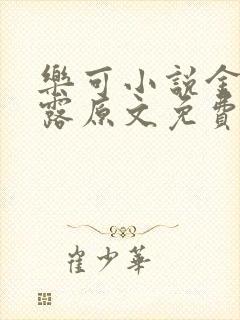 樂可小說金
露原文免費
崔少華